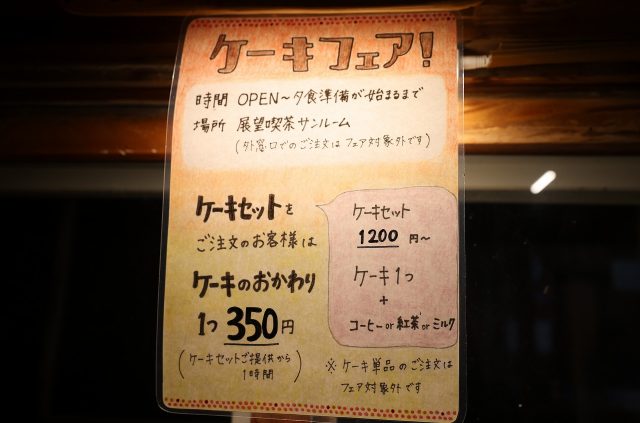 ケーキフェア!
時間 OPEN~夕食準備が始まるまで
場所 展望喫茶サンルーム
(外窓口でのご注文はフェア対象外です)
ケーキセットを
ご注文のお客様は
ケーキのおかわり
1つ 350円
(ケーキセットご提供から
1時間)
ケーキセット
1200円~
ケーキ1つ
+
コーヒー or 紅茶 or ミルク
※ ケーキ単品のご注文は
フェア対象外です